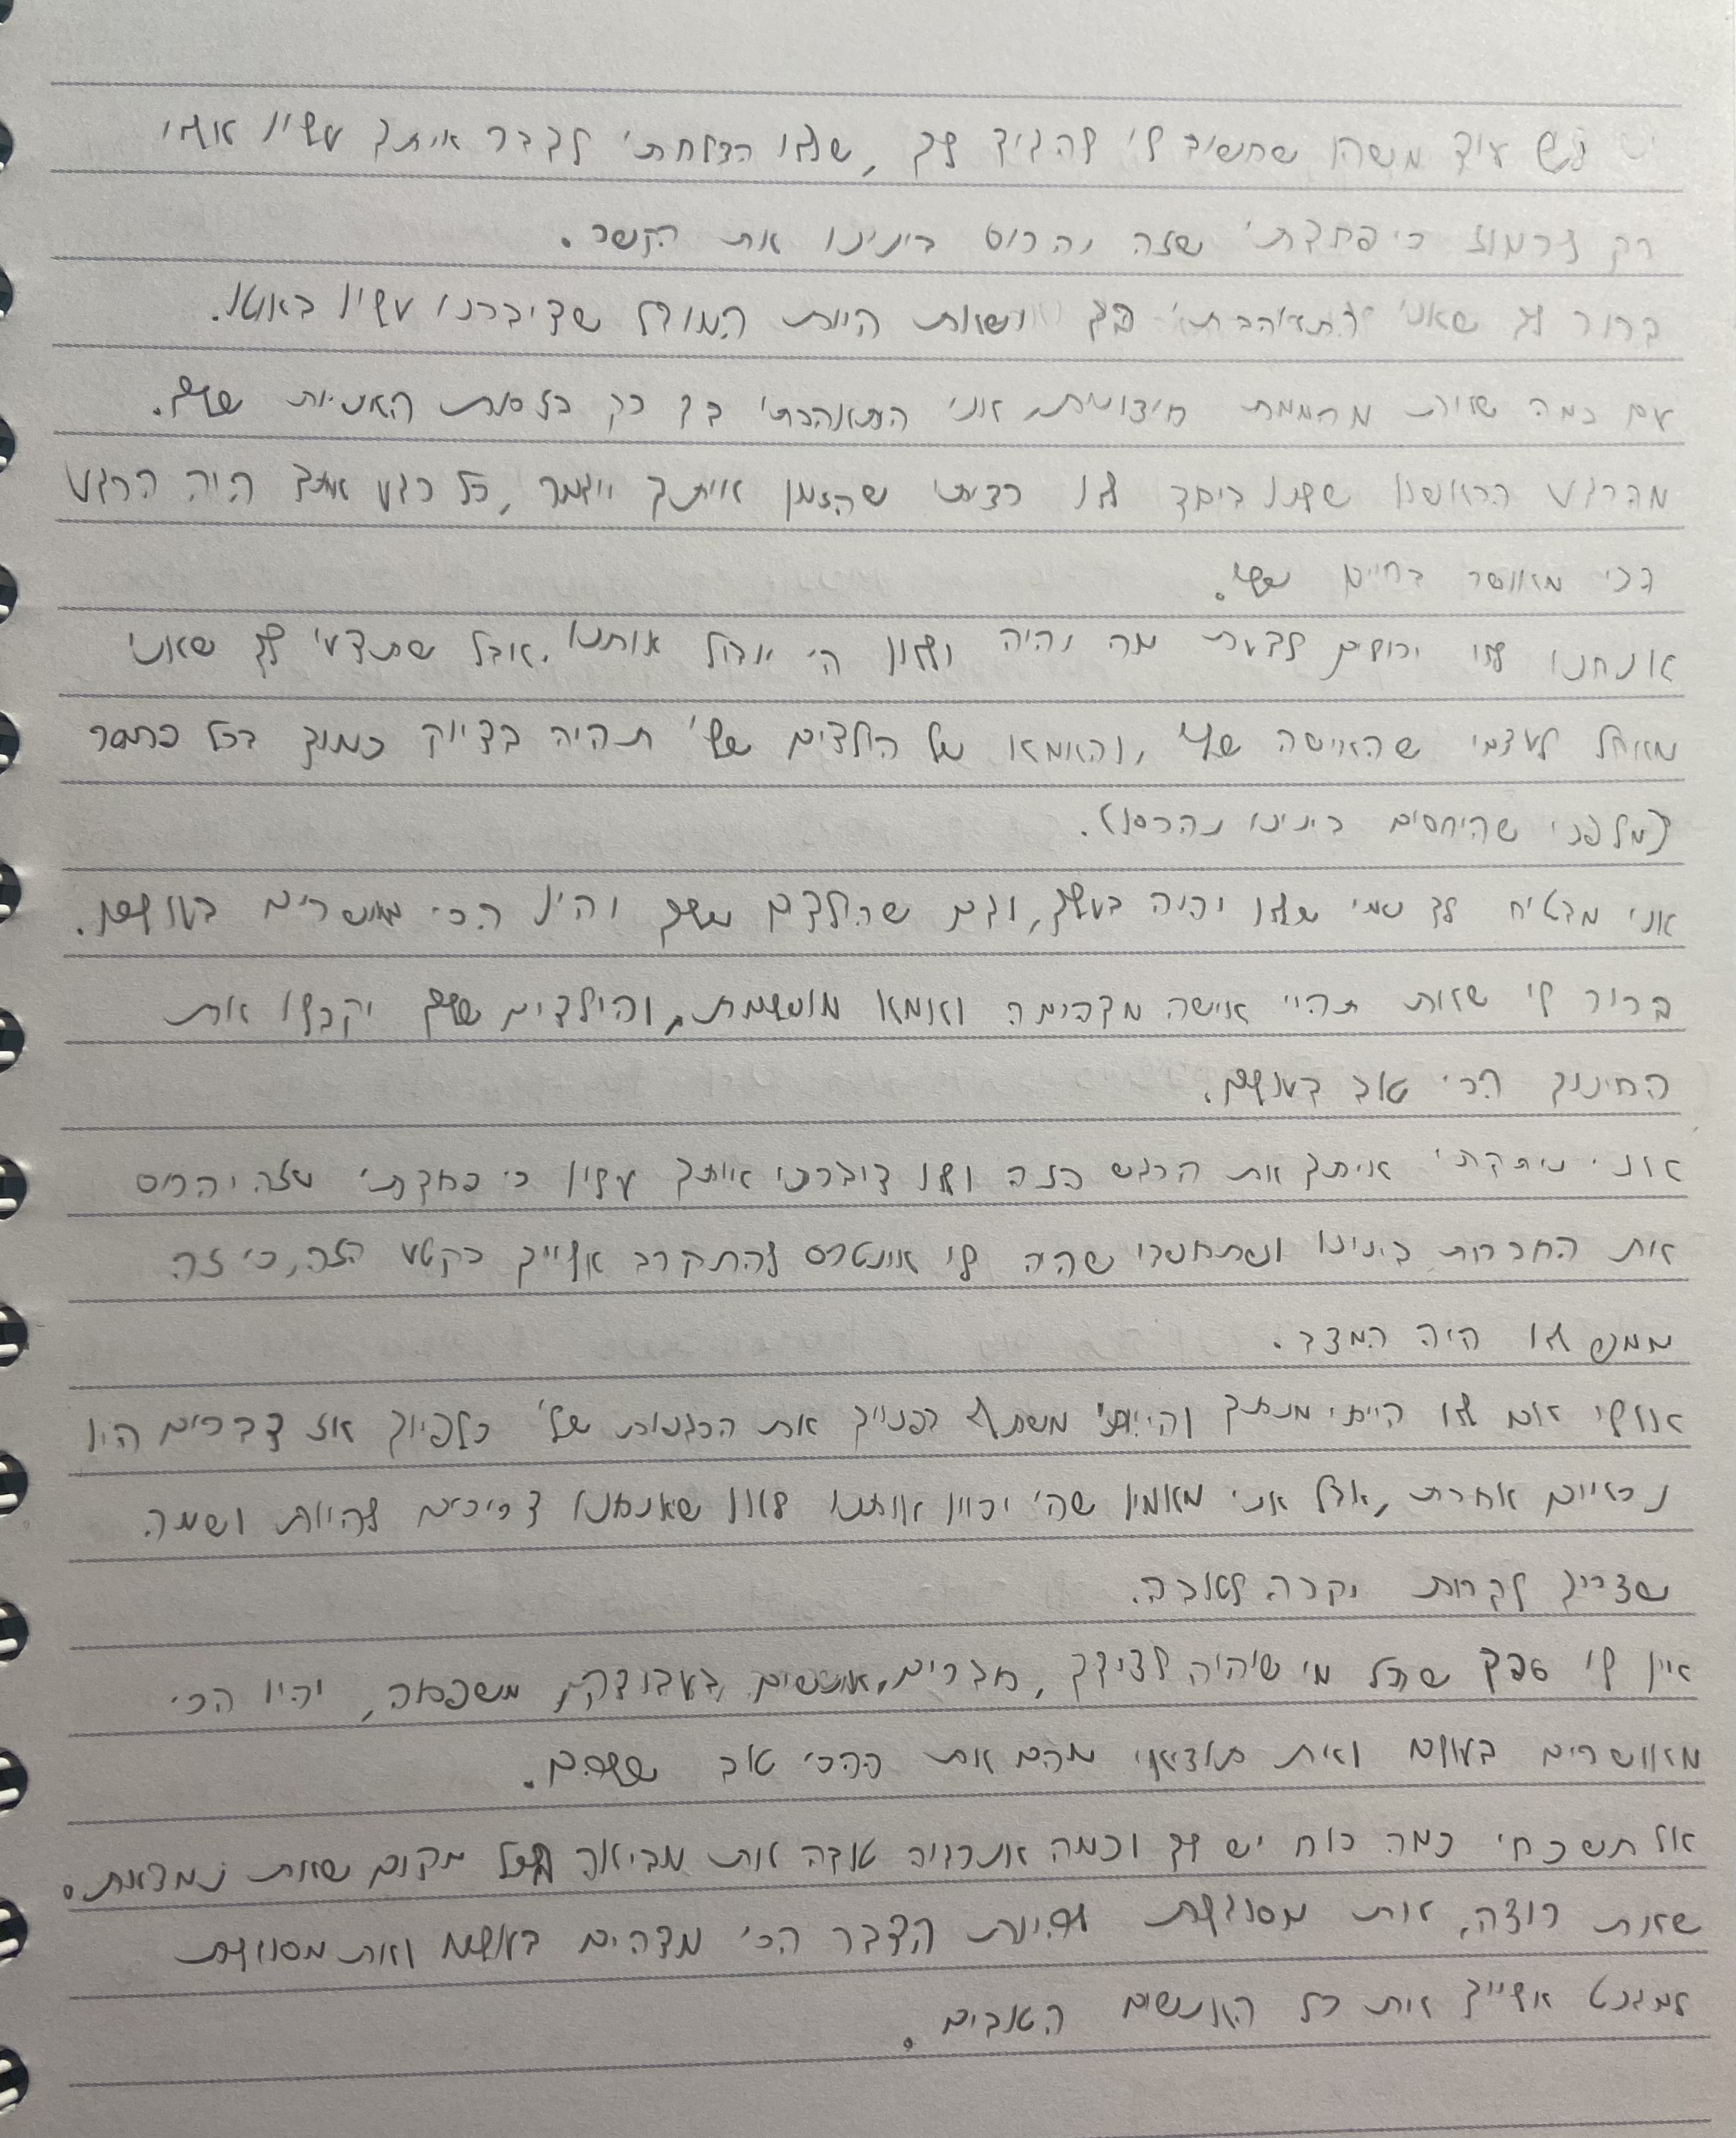 יש עוד משהו שחשוב לי להגיד לך, שלא הצלחתי לדבר איתך עליו אולי
רק לרמוז כי פחדתי שזה יהרוס בינינו את הקשר.
ברור לך שאני התאהבתי בך ושאת היית המודל שדיברנו עליו באוטו.
עם כמה שאת מהממת חיצונית, אני התאהבתי בך רק בזכות האישיות שלך.
מהרגע הראשון שלנו ביחד לא רציתי שהזמן איתך ייגמר, כל רגע איתך היה הרגע
הכי מאושר בחיים שלי.
אנחנו לא יכולים לדעת מה יהיה ולאן ה׳ יוביל אותנו. אבל שתדעי לך שאני
מאחל לעצמי שהאישה שלי, והאמא של הילדים שלי תהיה בדיוק כמוך בכל פרמטר
(מלפני שהיחסים בינינו נהרסו).
אני מבטיח לך שמי שלא יהיה בעלך, וגם שהילדים שלך יהיו הכי מאושרים בעולם.
ברור לי שאת תהיי אישה מדהימה ואמא מושלמת, והילדים שלך יקבלו את
החינוך הכי טוב בעולם.
אני ניתקתי איתך את הרגש הזה ולא דיברתי איתך עליו כי פחדתי שזה יהרוס
את החברות בינינו ושתחשבי שהיה לי אינטרס להתקרב אלייך בקטע הזה, כי זה
ממש לא היה המצב.
אולי אם לא הייתי מנתק והייתי משתף בפנייך את הרגשות שלי כלפייך אז דברים היו
נראים אחרת, אבל אני מאמין שה׳ יכוון אותנו לאן שאנחנו צריכים להיות ושמה
שצריך לקרות יקרה לטובה.
אין לי ספק שכל מי שיהיה לצידך, חברים, אנשים בעבודה, משפחה, יהיו הכי
מאושרים בעולם ואת תוציאי מהם את ההכי טוב שלהם.
אל תשכחי כמה כוח יש לך וכמה אנרגיה טובה את מביאה לכל מקום שאת נמצאת.
שאת רוצה, את מסוגלת להיות הדבר הכי מדהים בעולם ואת מסוגלת
למגנט אלייך את כל האנשים הטובים.